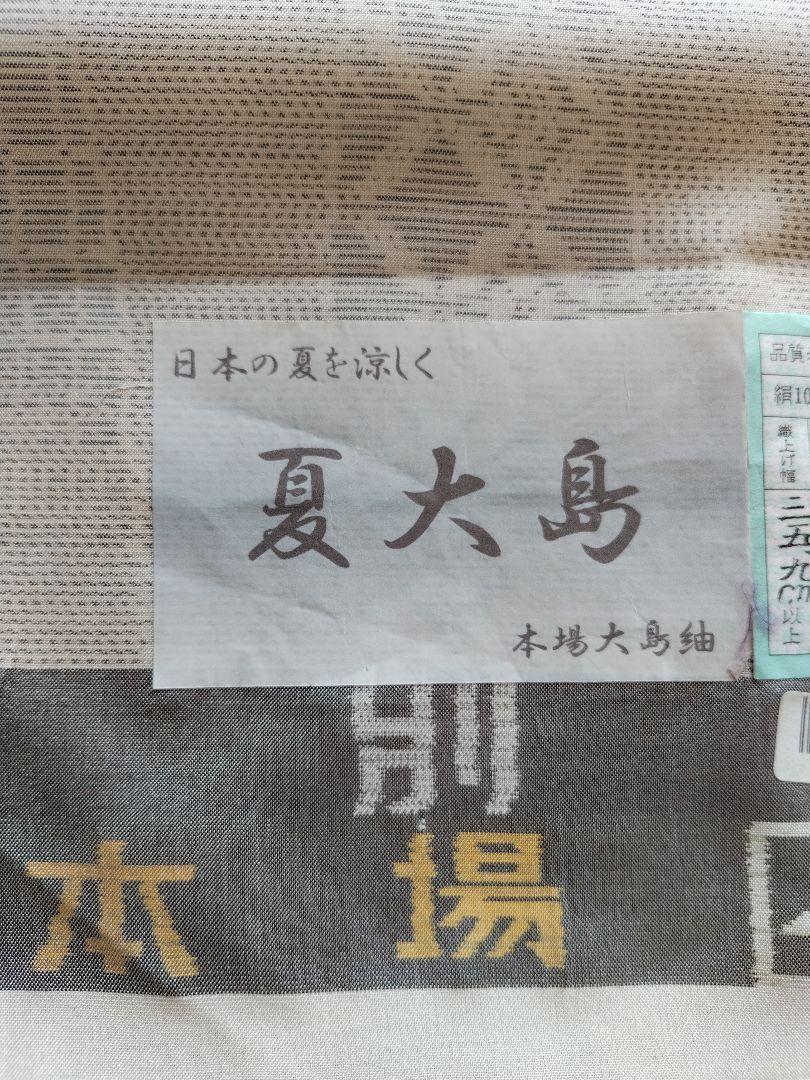 日本の夏を涼しく
夏大島
本場大島紬
品質
絹10
織上げ幅
三五.九cm以上
別
本場